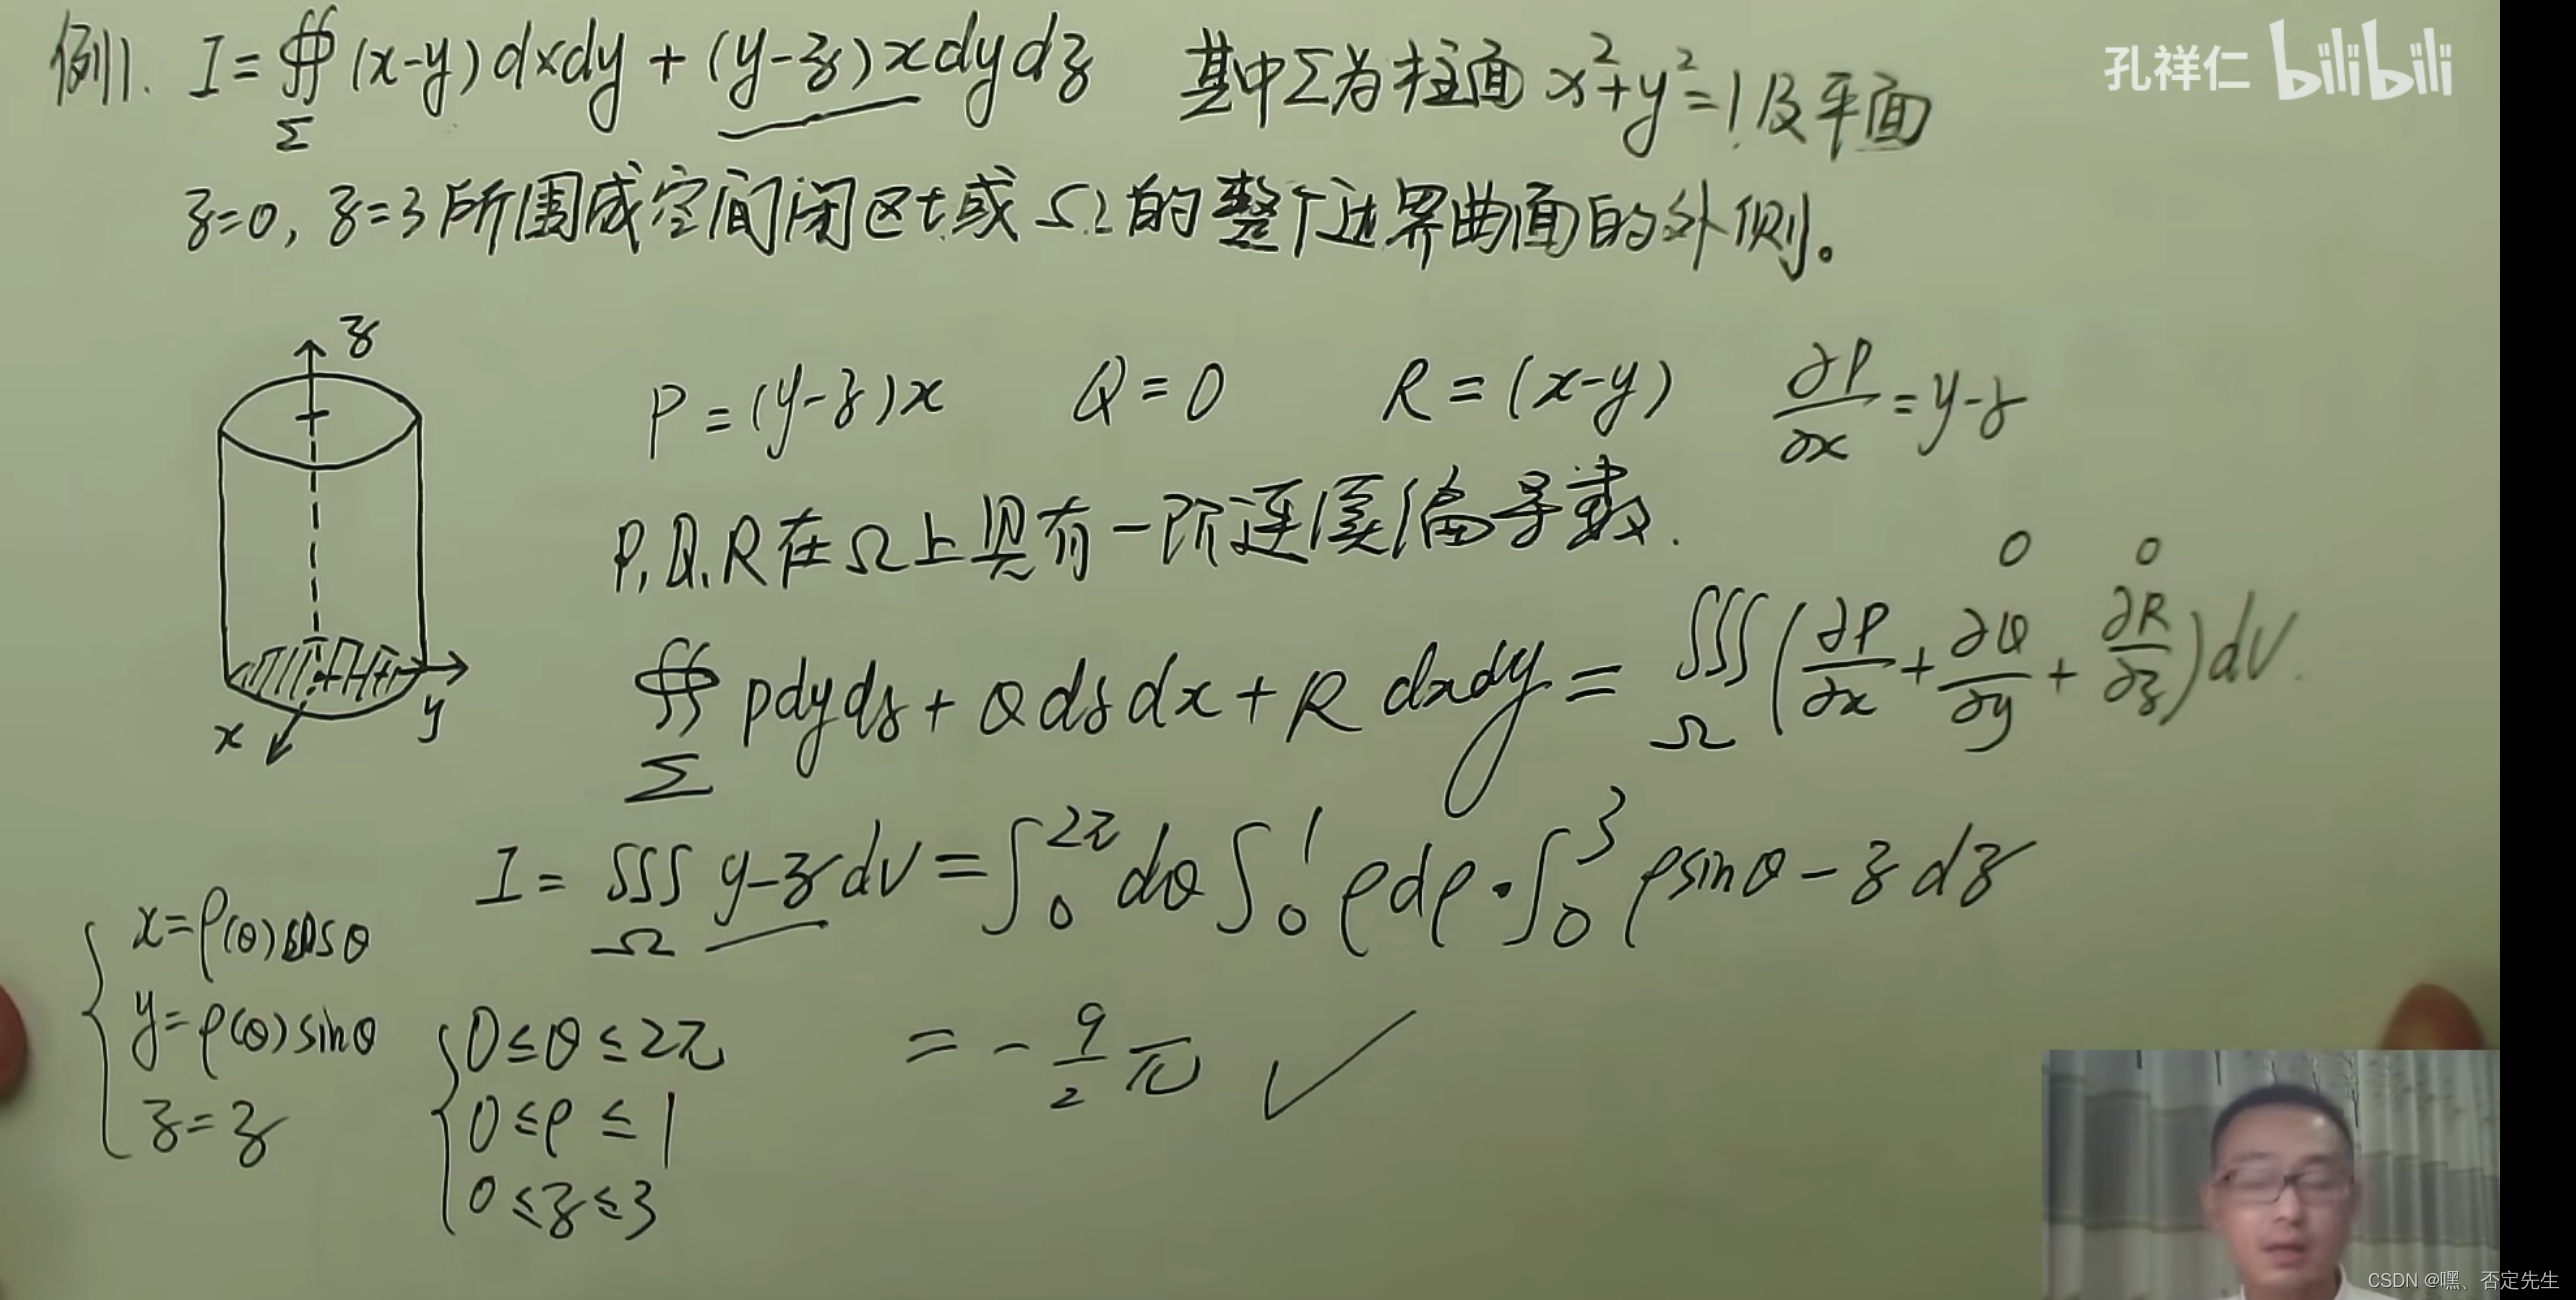 例1. I=∯(x-y)dxdy+(y-z)xdydz 其中Σ为柱面x²+y²=1及平面
Σ
孔祥仁 bilibili
z=0,z=3所围成空间闭区域Ω的整个边界曲面的外侧。
z
x
y
P=(y-z)x Q=0 R=(x-y) ∂P/∂x=y-z
P,Q,R在Ω上具有一阶连续偏导数.
0 0
∯Pdydz+Qdzdx+Rdxdy=∭(∂P/∂x+∂Q/∂y+∂R/∂z)dV.
Σ Ω
I=∭y-zdV=∫₀²πdθ∫₀¹ρdρ·∫₀³ρsinθ-zdz
Ω
x=ρ(θ)cosθ
y=ρ(θ)sinθ
z=z
0≤θ≤2π
0≤ρ≤1
0≤z≤3
=-9/2π ✓
CSDN @嘿、否定先生